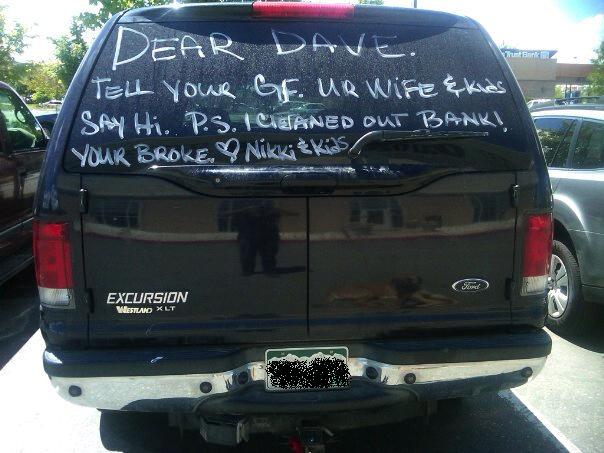 Trust Bank
DEAR DAVE.
TELL YOUR GF. UR WIFE & Kids
SAY Hi. P.S. I CLEANED OUT BANK!
YOUR BROKE. ♡ Nikki & Kids
EXCURSION
WESTLAND XLT
Ford